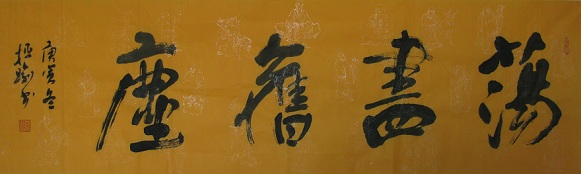 蕩盡舊塵
庚寅冬